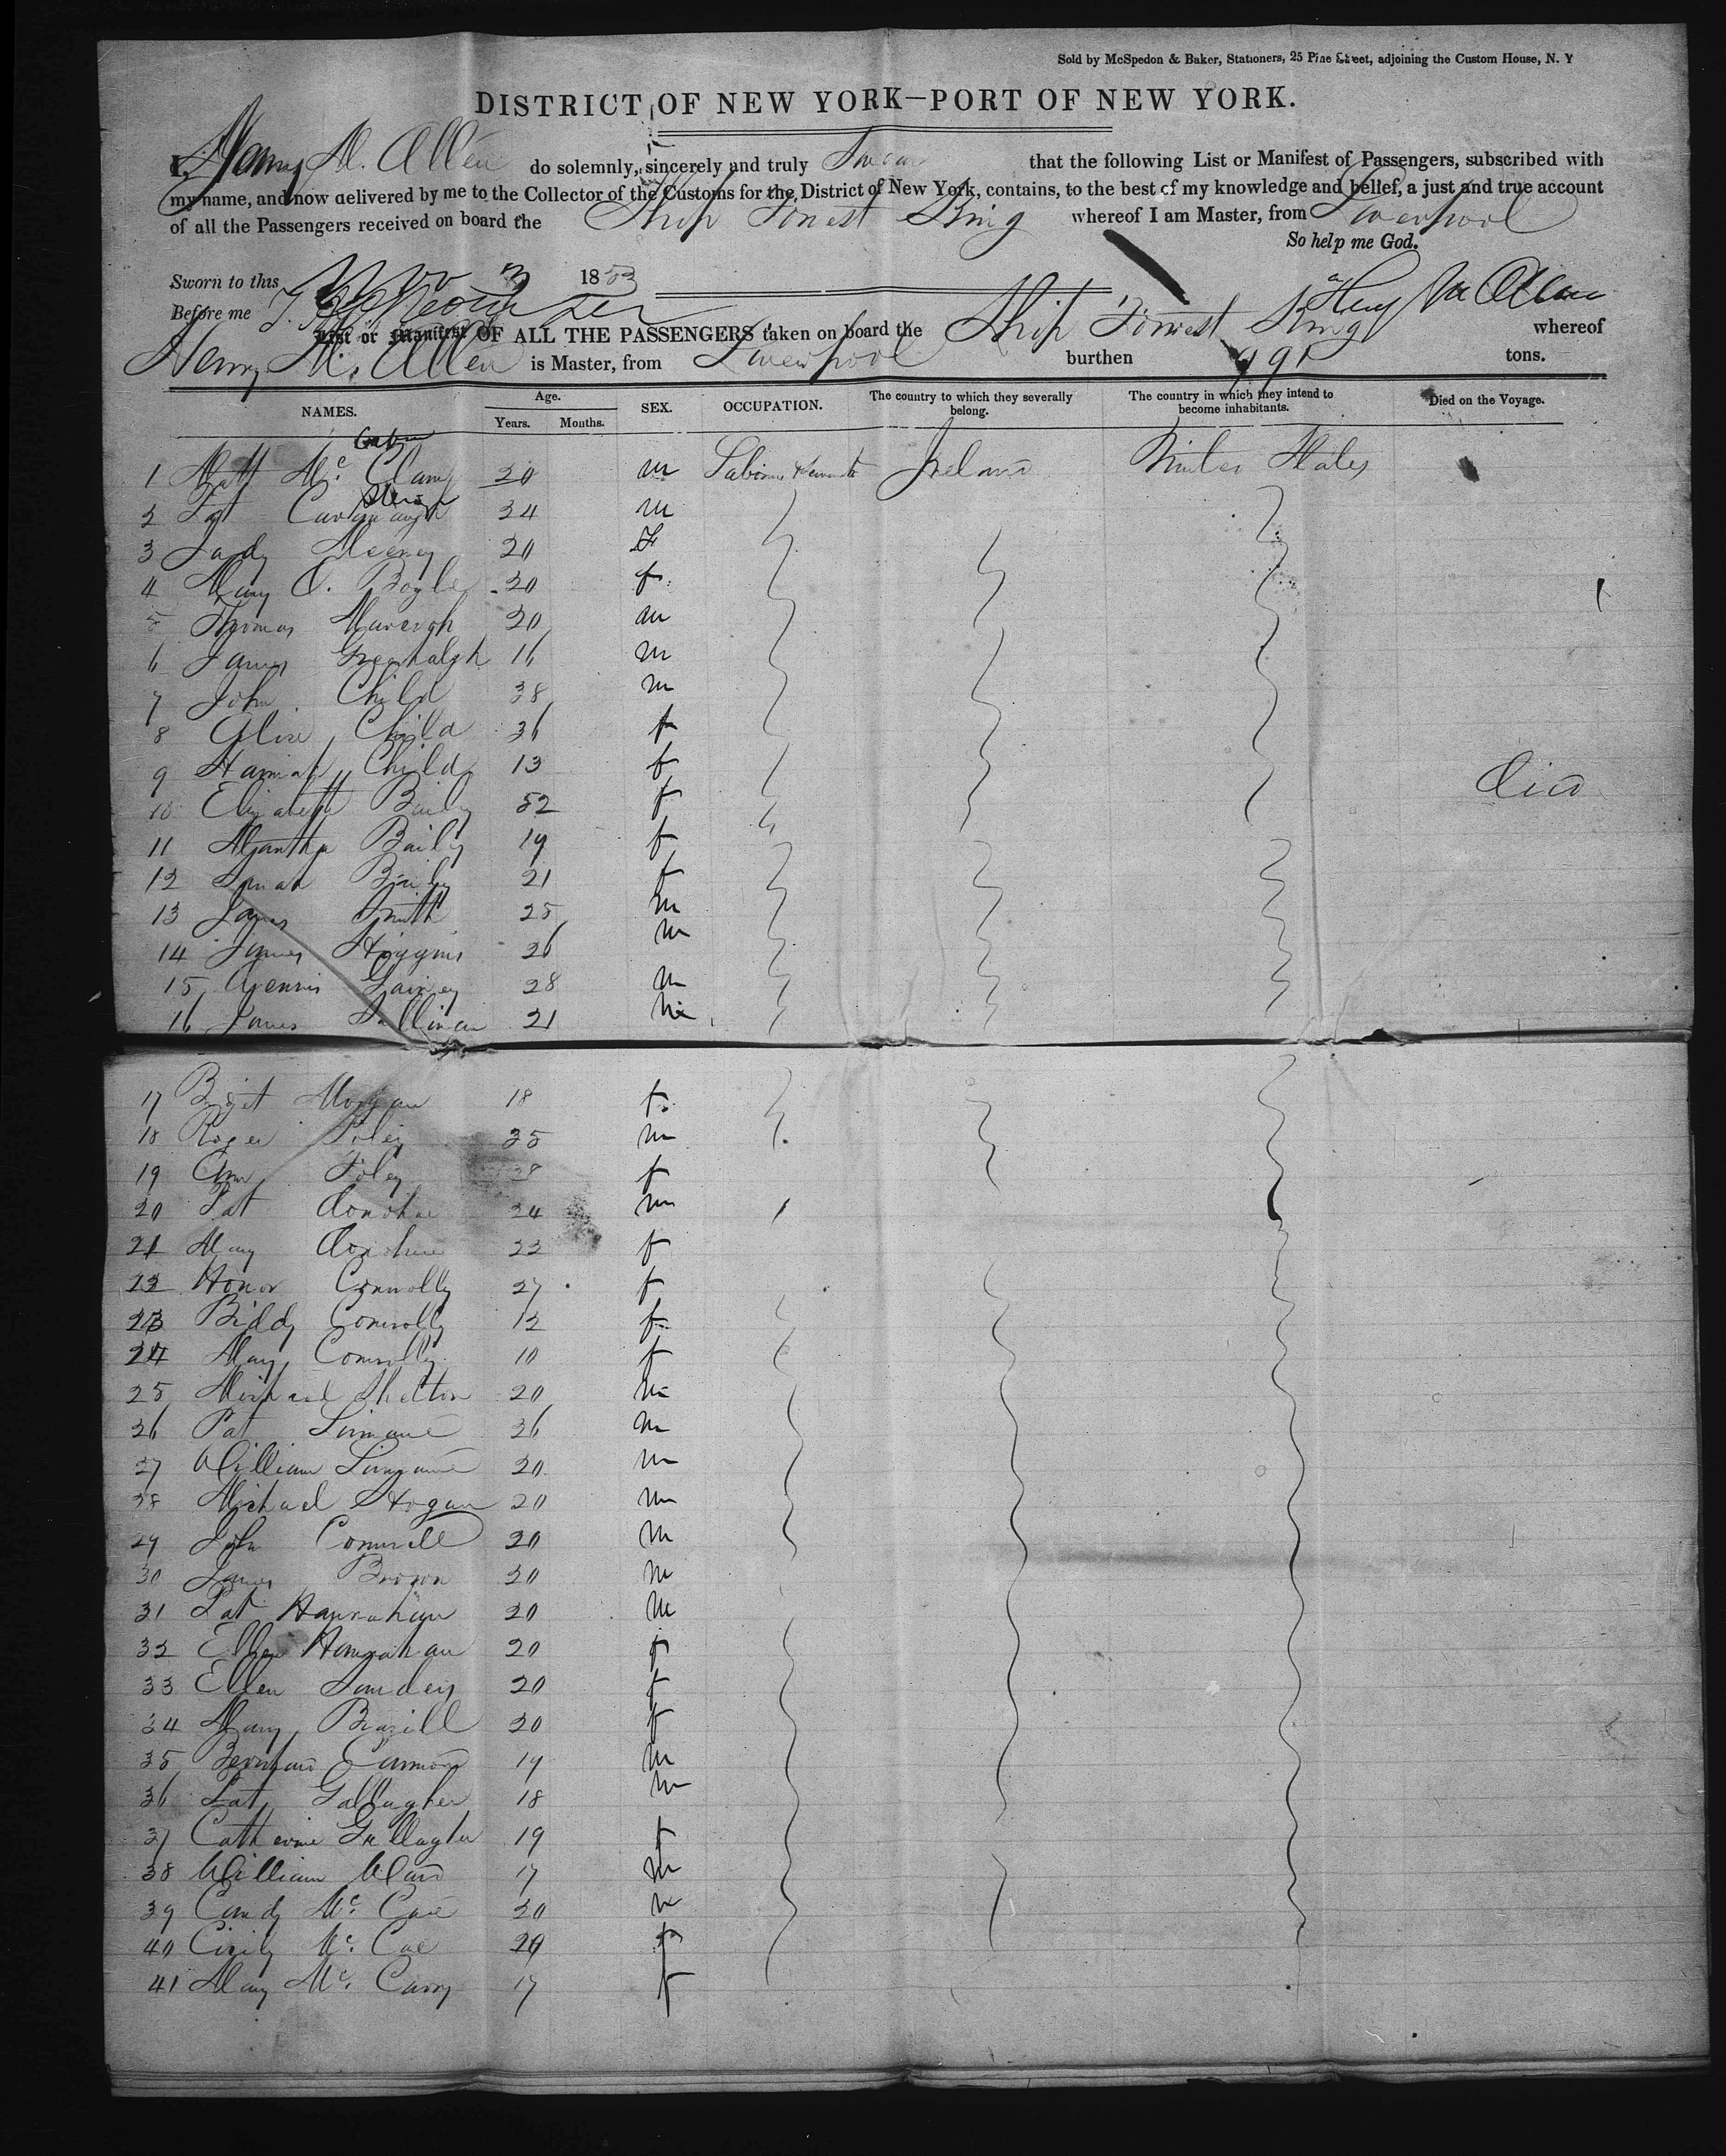 Sold by McSpedon & Baker, Stationers, 25 Pine Street, adjoining the Custom House, N. Y
DISTRICT OF NEW YORK—PORT OF NEW YORK.
I, Henry M. Allen do solemnly, sincerely and truly Swear that the following List or Manifest of Passengers, subscribed with
my name, and now delivered by me to the Collector of the Customs for the District of New York, contains, to the best of my knowledge and belief, a just and true account
of all the Passengers received on board the Ship Forrest King whereof I am Master, from Liverpool
So help me God.
Sworn to this Nov 3 1853
Before me Henry M Allen
List or Manifest OF ALL THE PASSENGERS taken on board the Ship Forrest King whereof
Henry M. Allen is Master, from Liverpool burthen 991 tons.
NAMES. Age. Years. Months. SEX. OCCUPATION. The country to which they severally belong. The country in which they intend to become inhabitants. Died on the Voyage.
1 Matt Mc 20 m Ireland United States
2 Pat 24 m
3 20 F
4 Mary O. Boyle 20 f
5 Thomas 20 m
6 James Greenhalgh 16 m
7 John Child 38 m
8 Alice Child 36 f
9 Hannah Child 13 f Died
10 Elizabeth Baily 52 f
11 Baily 19 f
12 Baily 21 f
13 James Smith 25 m
14 James Higgins 26 m
15 Dennis 28 m
16 James 21 m
17 Bridget Morgan 18 f
18 Roger Foley 35 m
19 Ann Foley 38 f
20 Pat Donohue 24 m
21 Mary Donohue 22 f
22 Honor Connolly 27 f
23 Biddy Connolly 12 f
24 Mary Connolly 10 f
25 Michael Shelton 20 m
26 Pat 26 m
27 William 20 m
28 Michael Hogan 20 m
29 John 20 m
30 James Brown 20 m
31 Pat Hanrahan 20 m
32 Ellen Hanrahan 20 f
33 Ellen 20 f
34 Mary Brazill 20 f
35 19 m
36 Pat Gallagher 18 m
37 Catherine Gallagher 19 f
38 William Ward 17 m
39 Condy Mc Cue 20 m
40 Cicily Mc Cue 20 f
41 Mary Mc 17 f